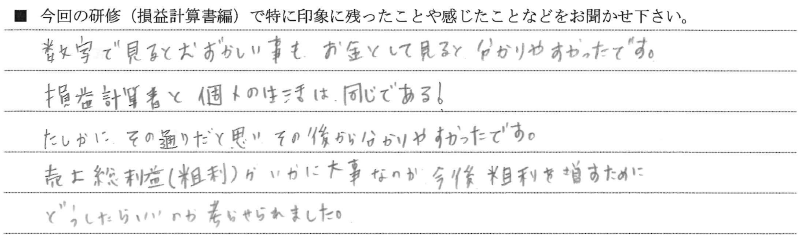 ■ 今回の研修（損益計算書編）で特に印象に残ったことや感じたことなどをお聞かせ下さい。
数字で見るとむずかしい事も お金として見ると 分かりやすかったです。
損益計算書と 個人の生活は 同じである！
たしかに その通りだと思い その後から分かりやすかったです。
売上総利益(粗利)がいかに大事なのか 今後 粗利を増すために
どうしたらいいのか考えせられました。